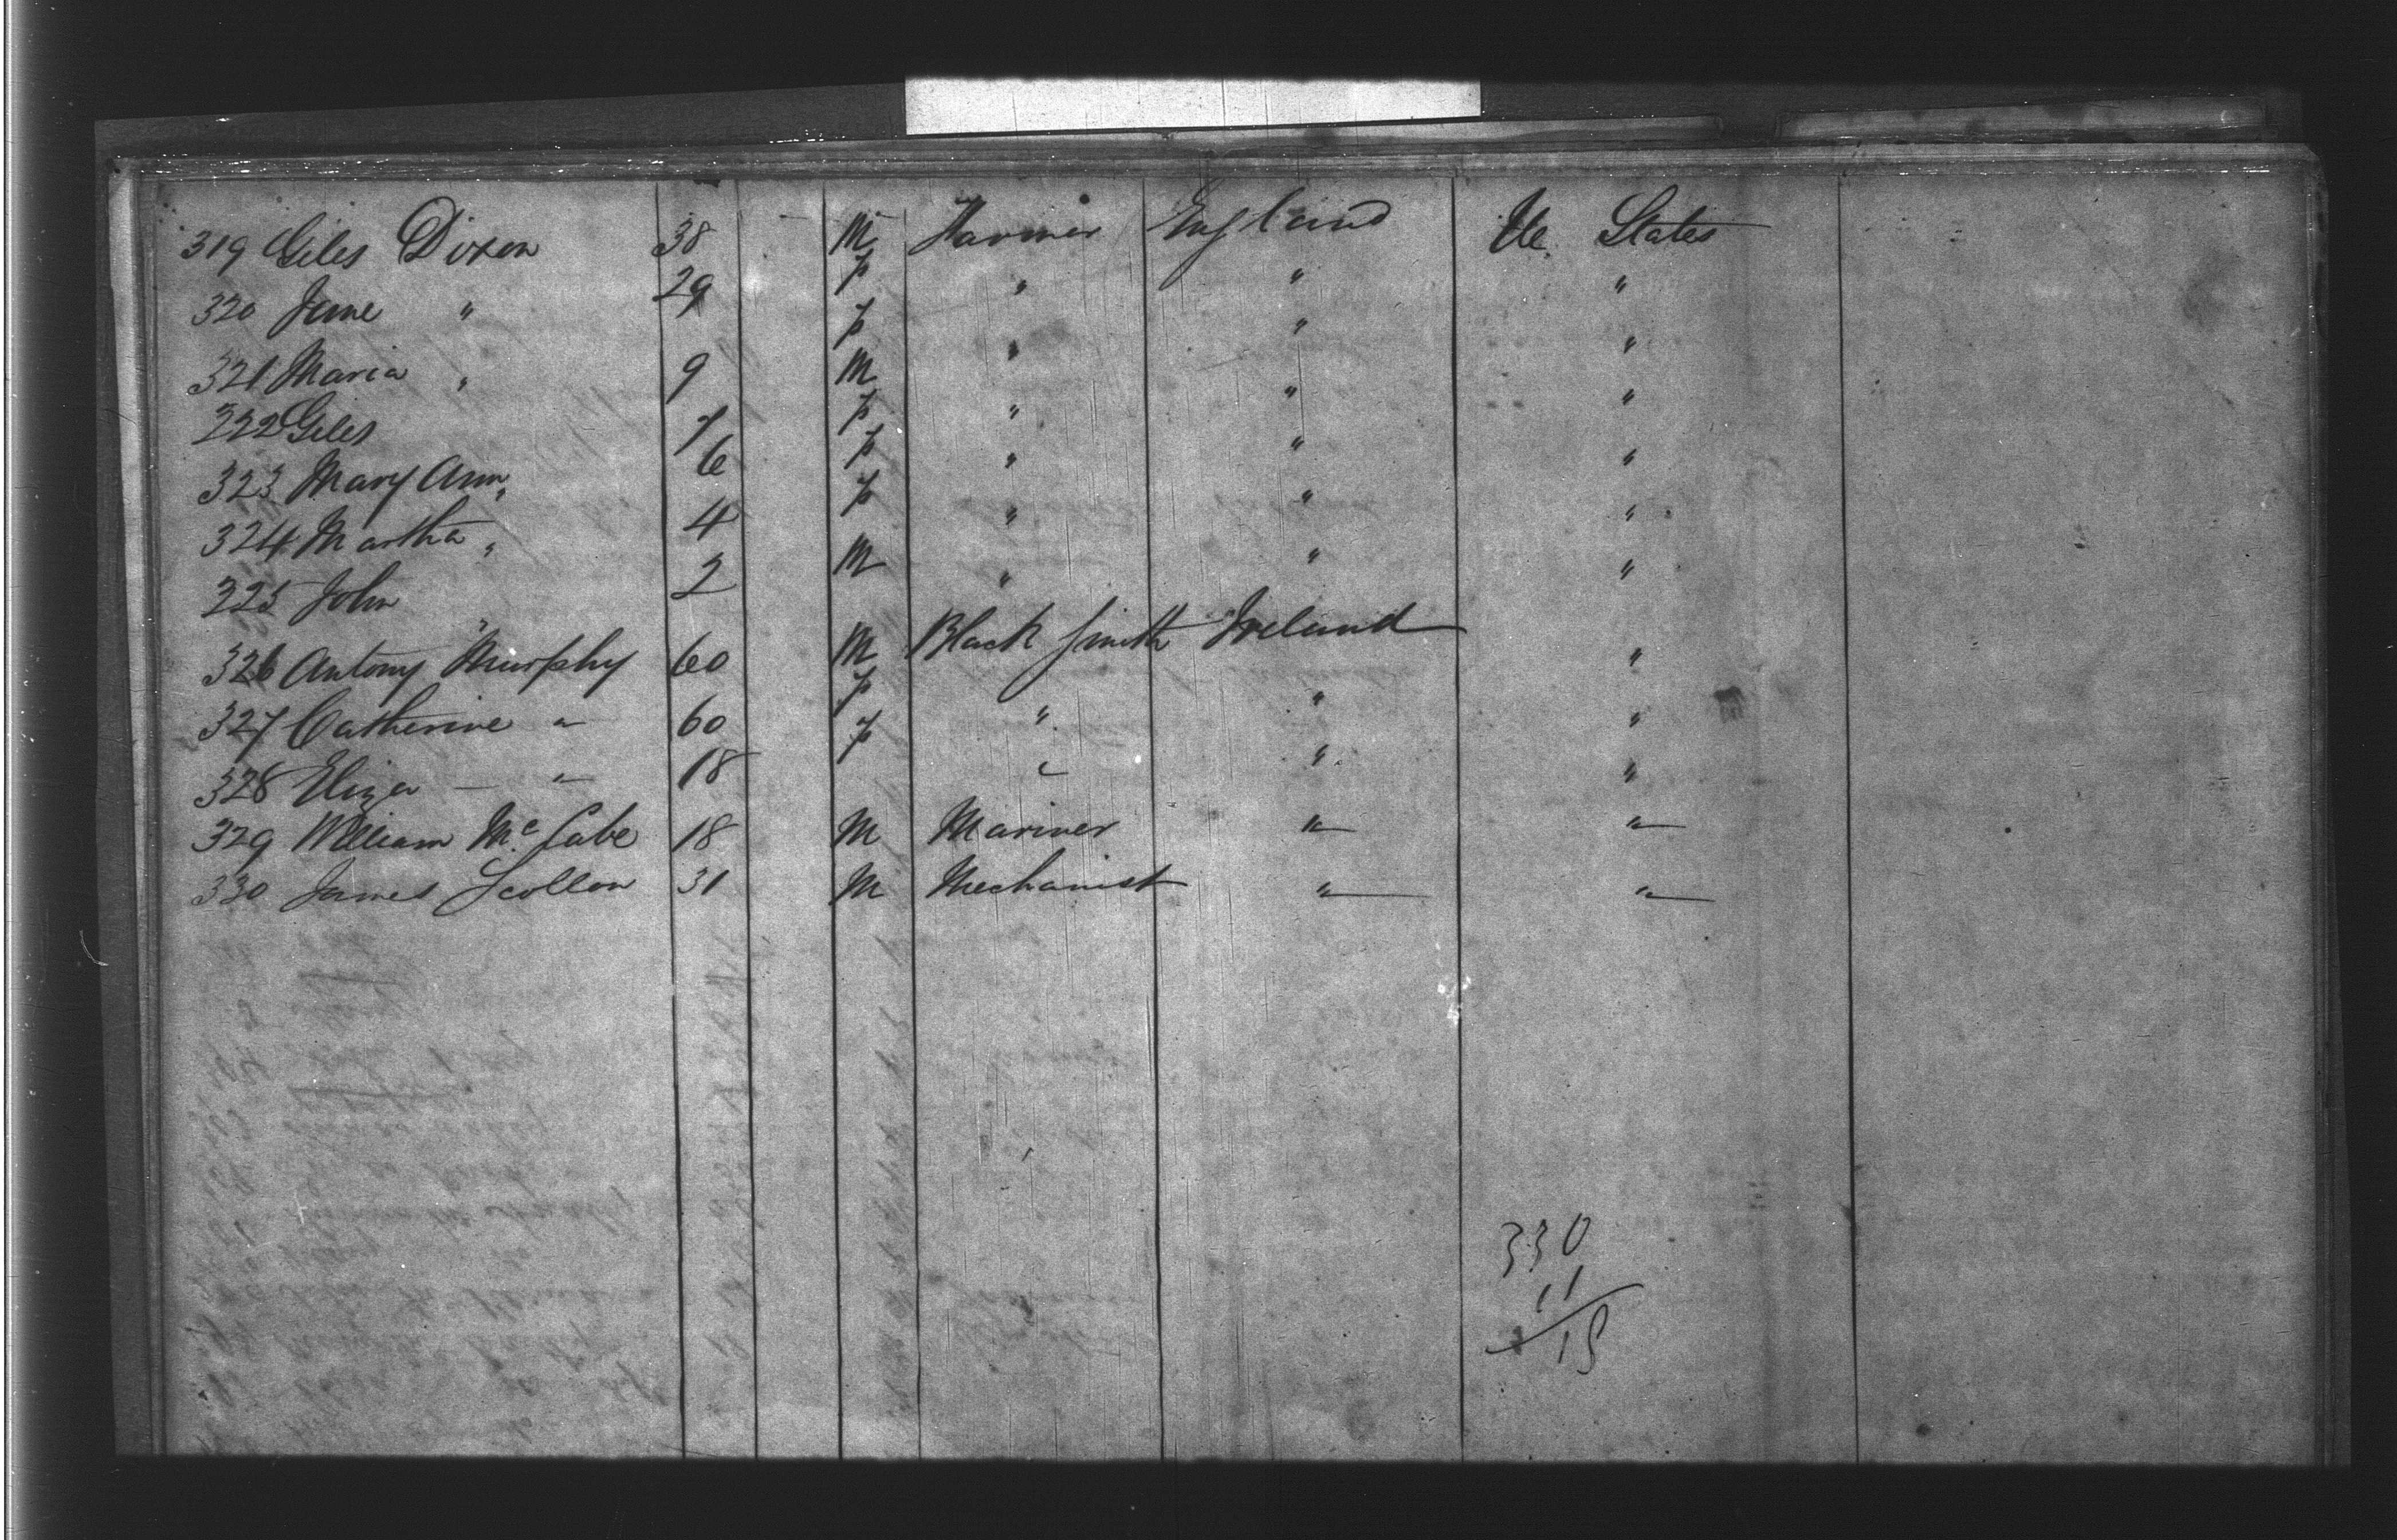 319 Giles Dixon 38 M Farmer England U. States
320 Jane " 29 f " " "
321 Maria " 9 f " " "
322 Giles 7 M " " "
323 Mary Ann " 6 f " " "
324 Martha " 4 f " " "
325 John " 2 M " " "
326 Antony Murphy 60 M Black Smith Ireland "
327 Catherine " 60 f " " "
328 Eliza — " 18 f " " "
329 William Mc Cabe 18 M Mariner " "
330 James Scollon 31 M Mechanist " "
330
11